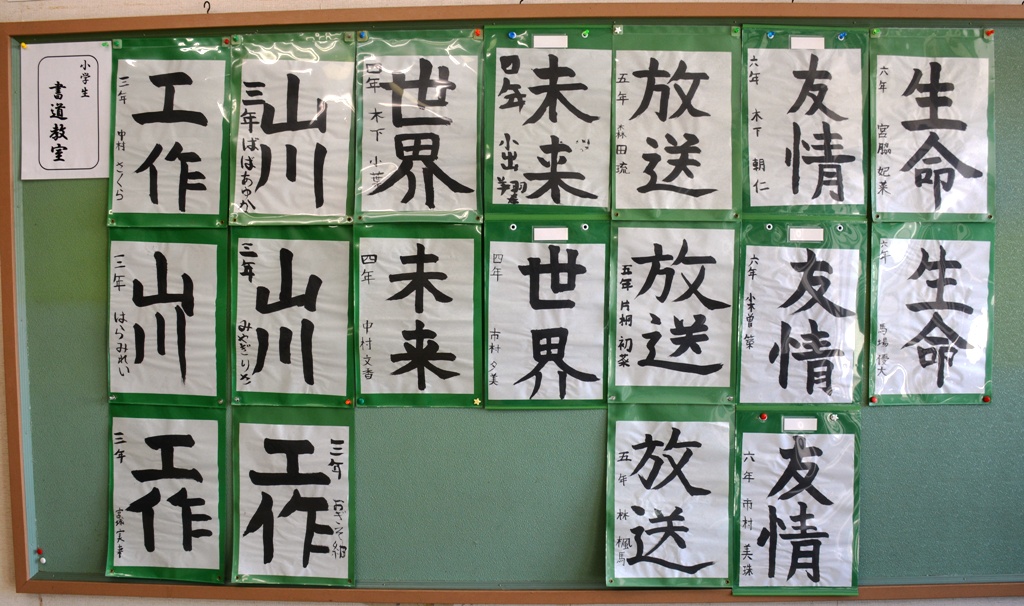 小学生
書道教室
工作
三年 中村 さくら
山川
三年 ばばあゆか
世界
四年 木下
未来
四年 小出
放送
五年 森田 琉
友情
六年 木下 朝仁
生命
六年 宮脇 妃菜
山川
三年 はらみれい
山川
三年
未来
四年 中村 文香
世界
四年 市村 夕美
放送
五年 片桐 初菜
友情
六年 小木曽
生命
六年 馬場 優大
工作
三年
工作
三年
放送
五年 林 楓馬
友情
六年 市村 美珠